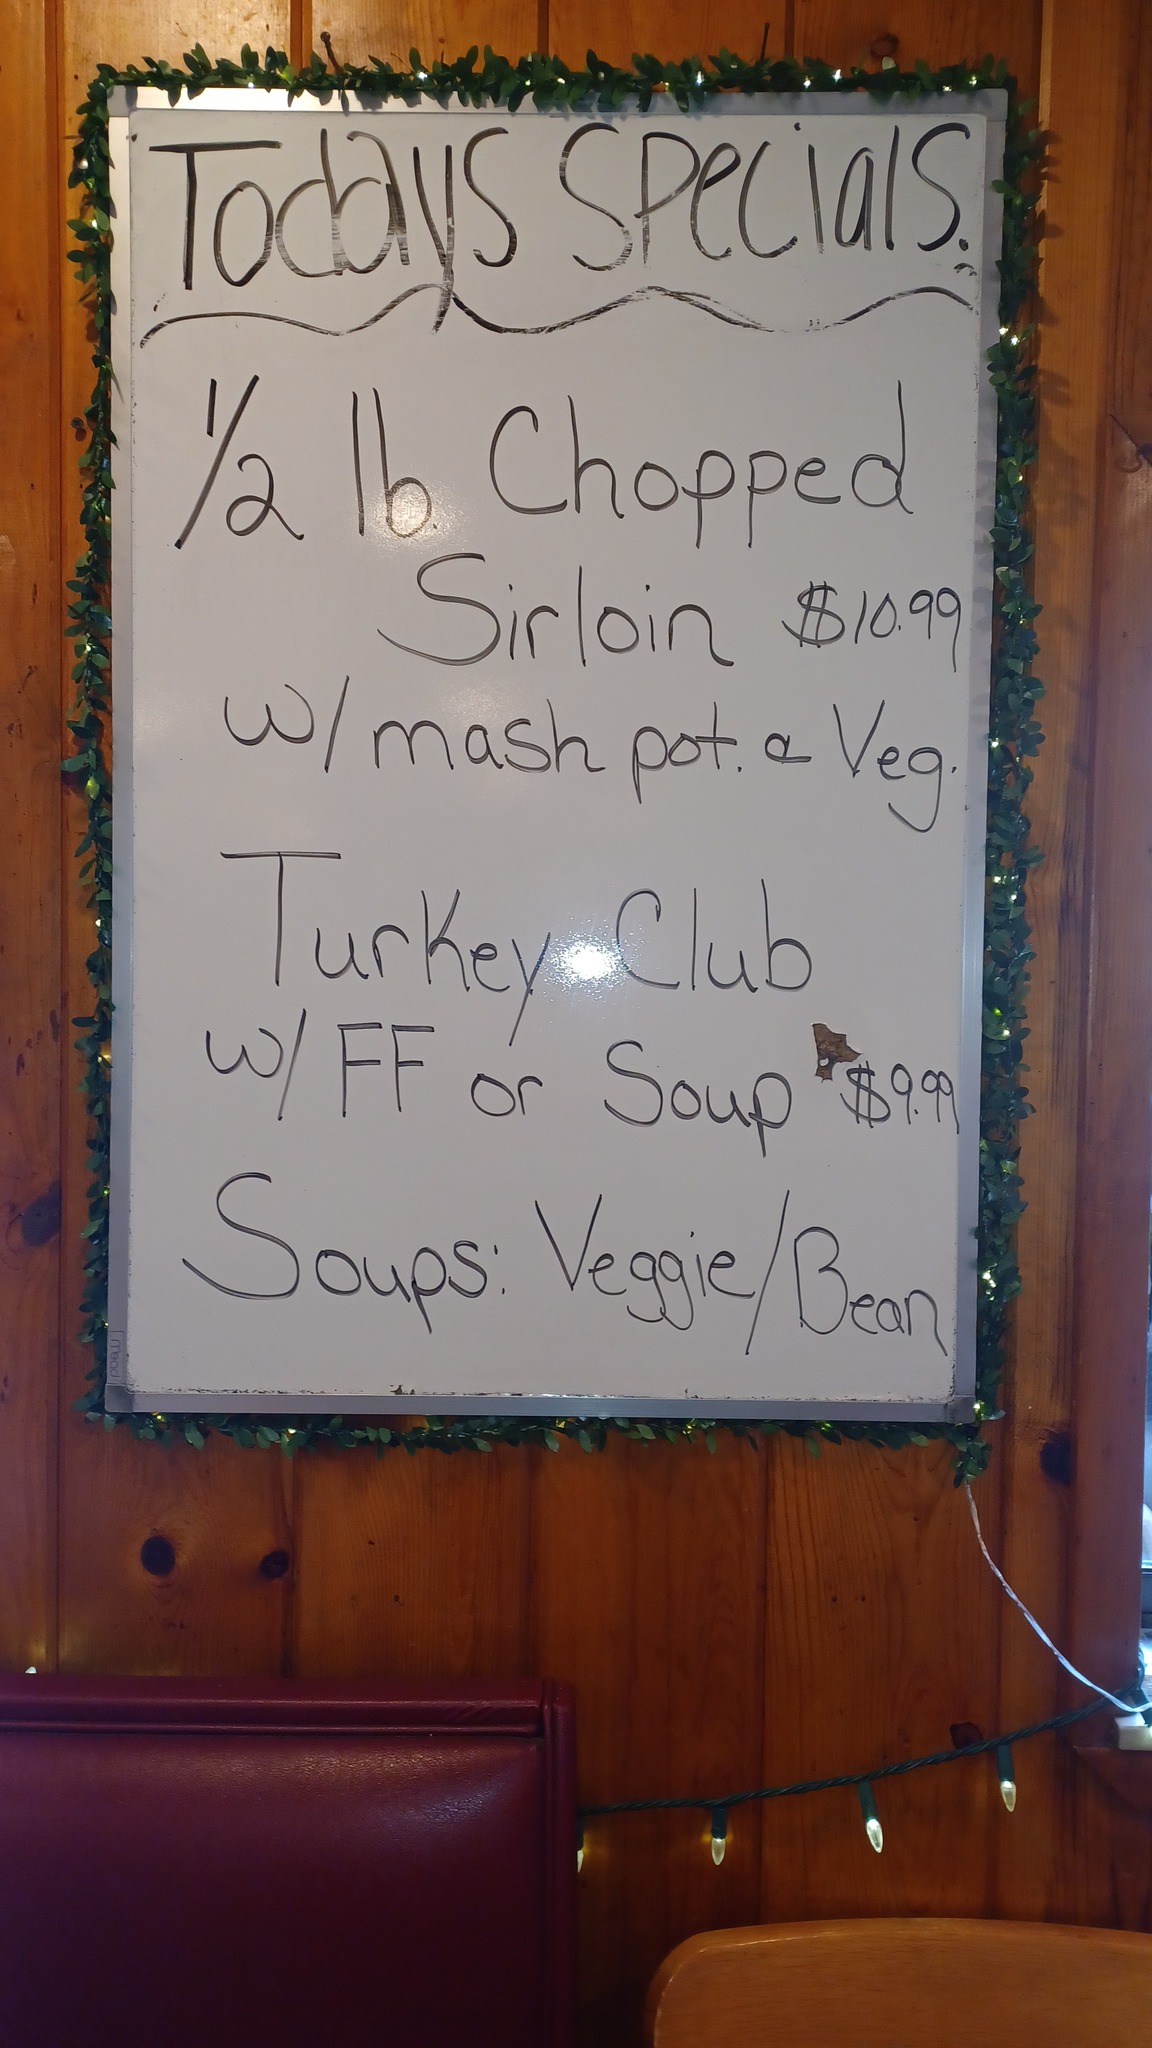 Todays Specials.
1/2 lb. Chopped
Sirloin $10.99
w/ mash pot. & Veg.
Turkey Club
w/ FF or Soup $9.99
Soups: Veggie/Bean
mead